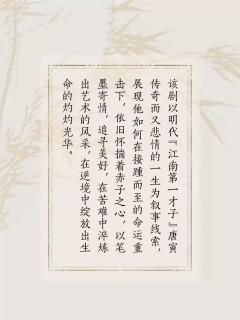 该剧以明代『江南第一才子』唐寅
传奇而又悲情的一生为叙事线索，
展现他如何在接踵而至的命运重
击下，依旧怀揣着赤子之心，以笔
墨寄情，追寻美好，在苦难中淬炼
出艺术的风采，在逆境中绽放出生
命的灼灼光华。